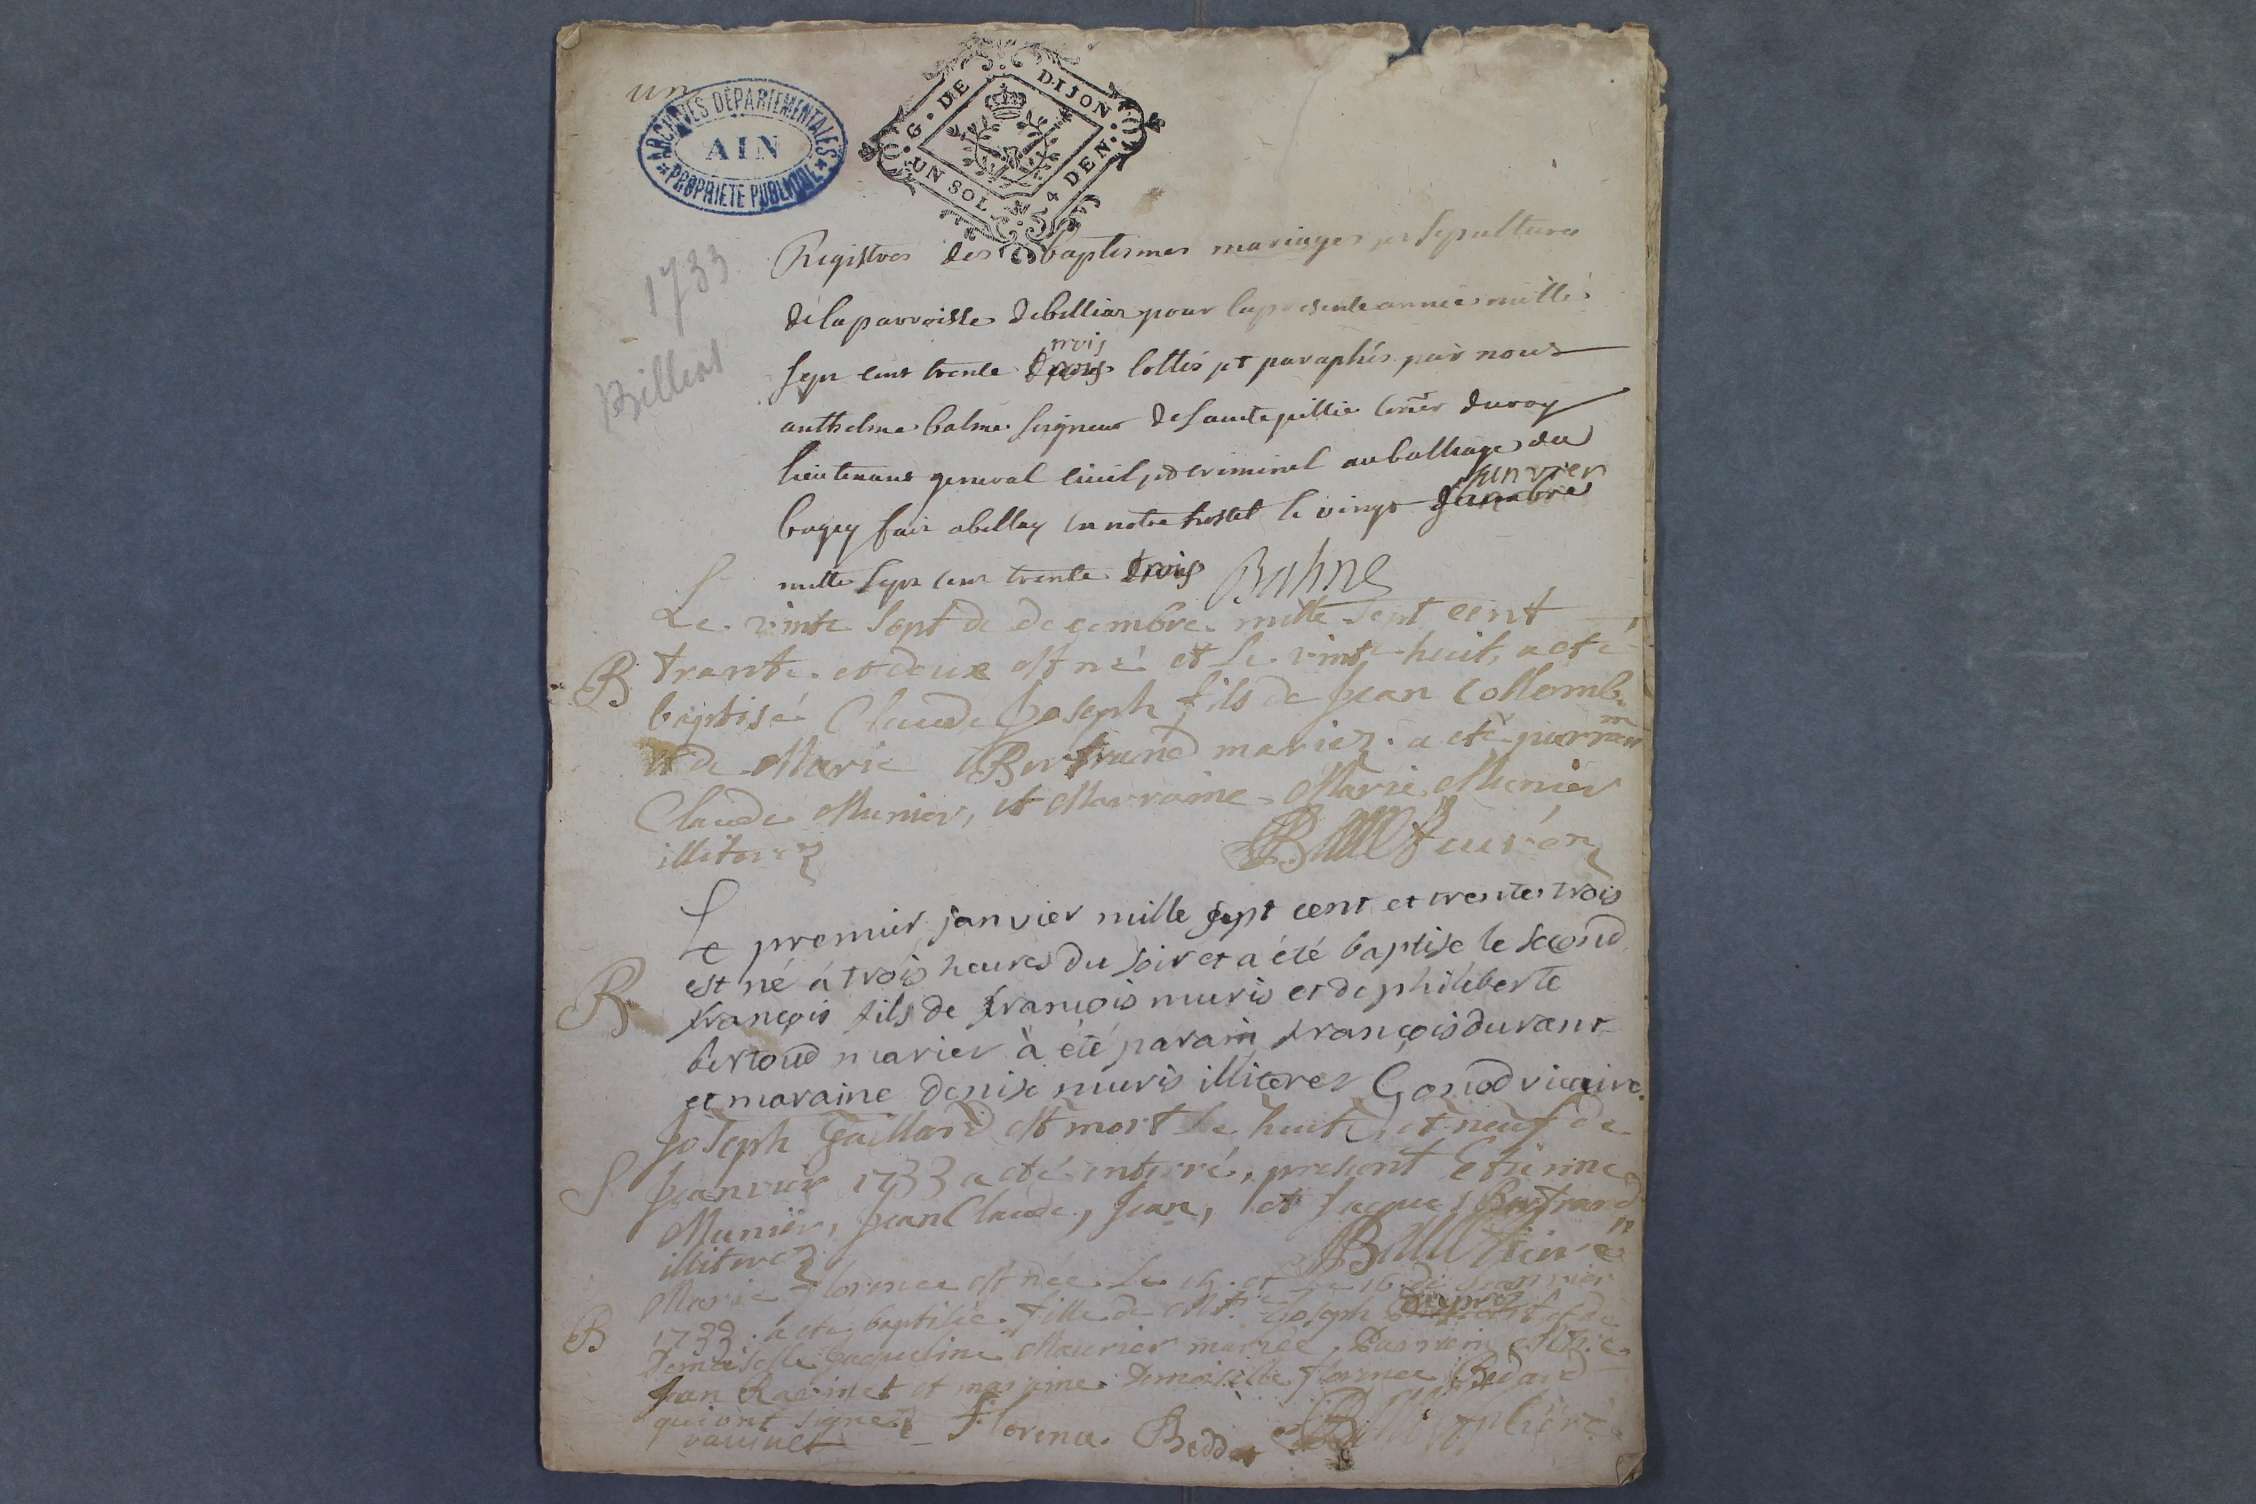 un
ARCHIVES DEPARTEMENTALES
AIN
PROPRIETE PUBLIQUE
G. DE DIJON
UN SOL 4 DEN.
1733
Billiat
Registres des baptismes mariages et sepultures
de la parroisse de billiat pour la presente année mille
sept cent trente trois cottés et paraphés par nous
anthelme balme seigneur de sainte jullie coner du roy
lieutenant general civil et criminel au balliage du
janvier
bugey fait a bellay en notre hostel le vingt
mille sept cent trente trois Balme
Le vinte sept de decembre mille sept cent
B trante et deux est né et le vinte huit, a eté
baptisé Claude Joseph fils de Jean Collomb
et de Marie Bertrand mariez. a eté parrain
Claude Munier, et Marraine Marie Munier
illiterez curé
Le premier janvier mille sept cent et trente trois
B est né á trois heures du soir et a été baptise le second
françois fils de françois muris et de philiberte
bertoud mariez à été parain françois durant
et maraine denise muris illiterez Gonod vicaire.
Joseph Gaillard est mort le huit, et neuf de
S Janvier 1733 a eté enterré, present Etienne
Munier, Jean Claude, Jean, et Jacque Bertrand
illiterez curé
Marie Florence est née le 15 et le 16 de Janvier
B 1733. a ete baptisée fille de Mr. Joseph et de
Demoiselle Jaqueline Maurier mariée, Parrain
Jean Ravinet et marraine Demoiselle Florence Bedard
qui ont signez Florence Beddor
ravinet